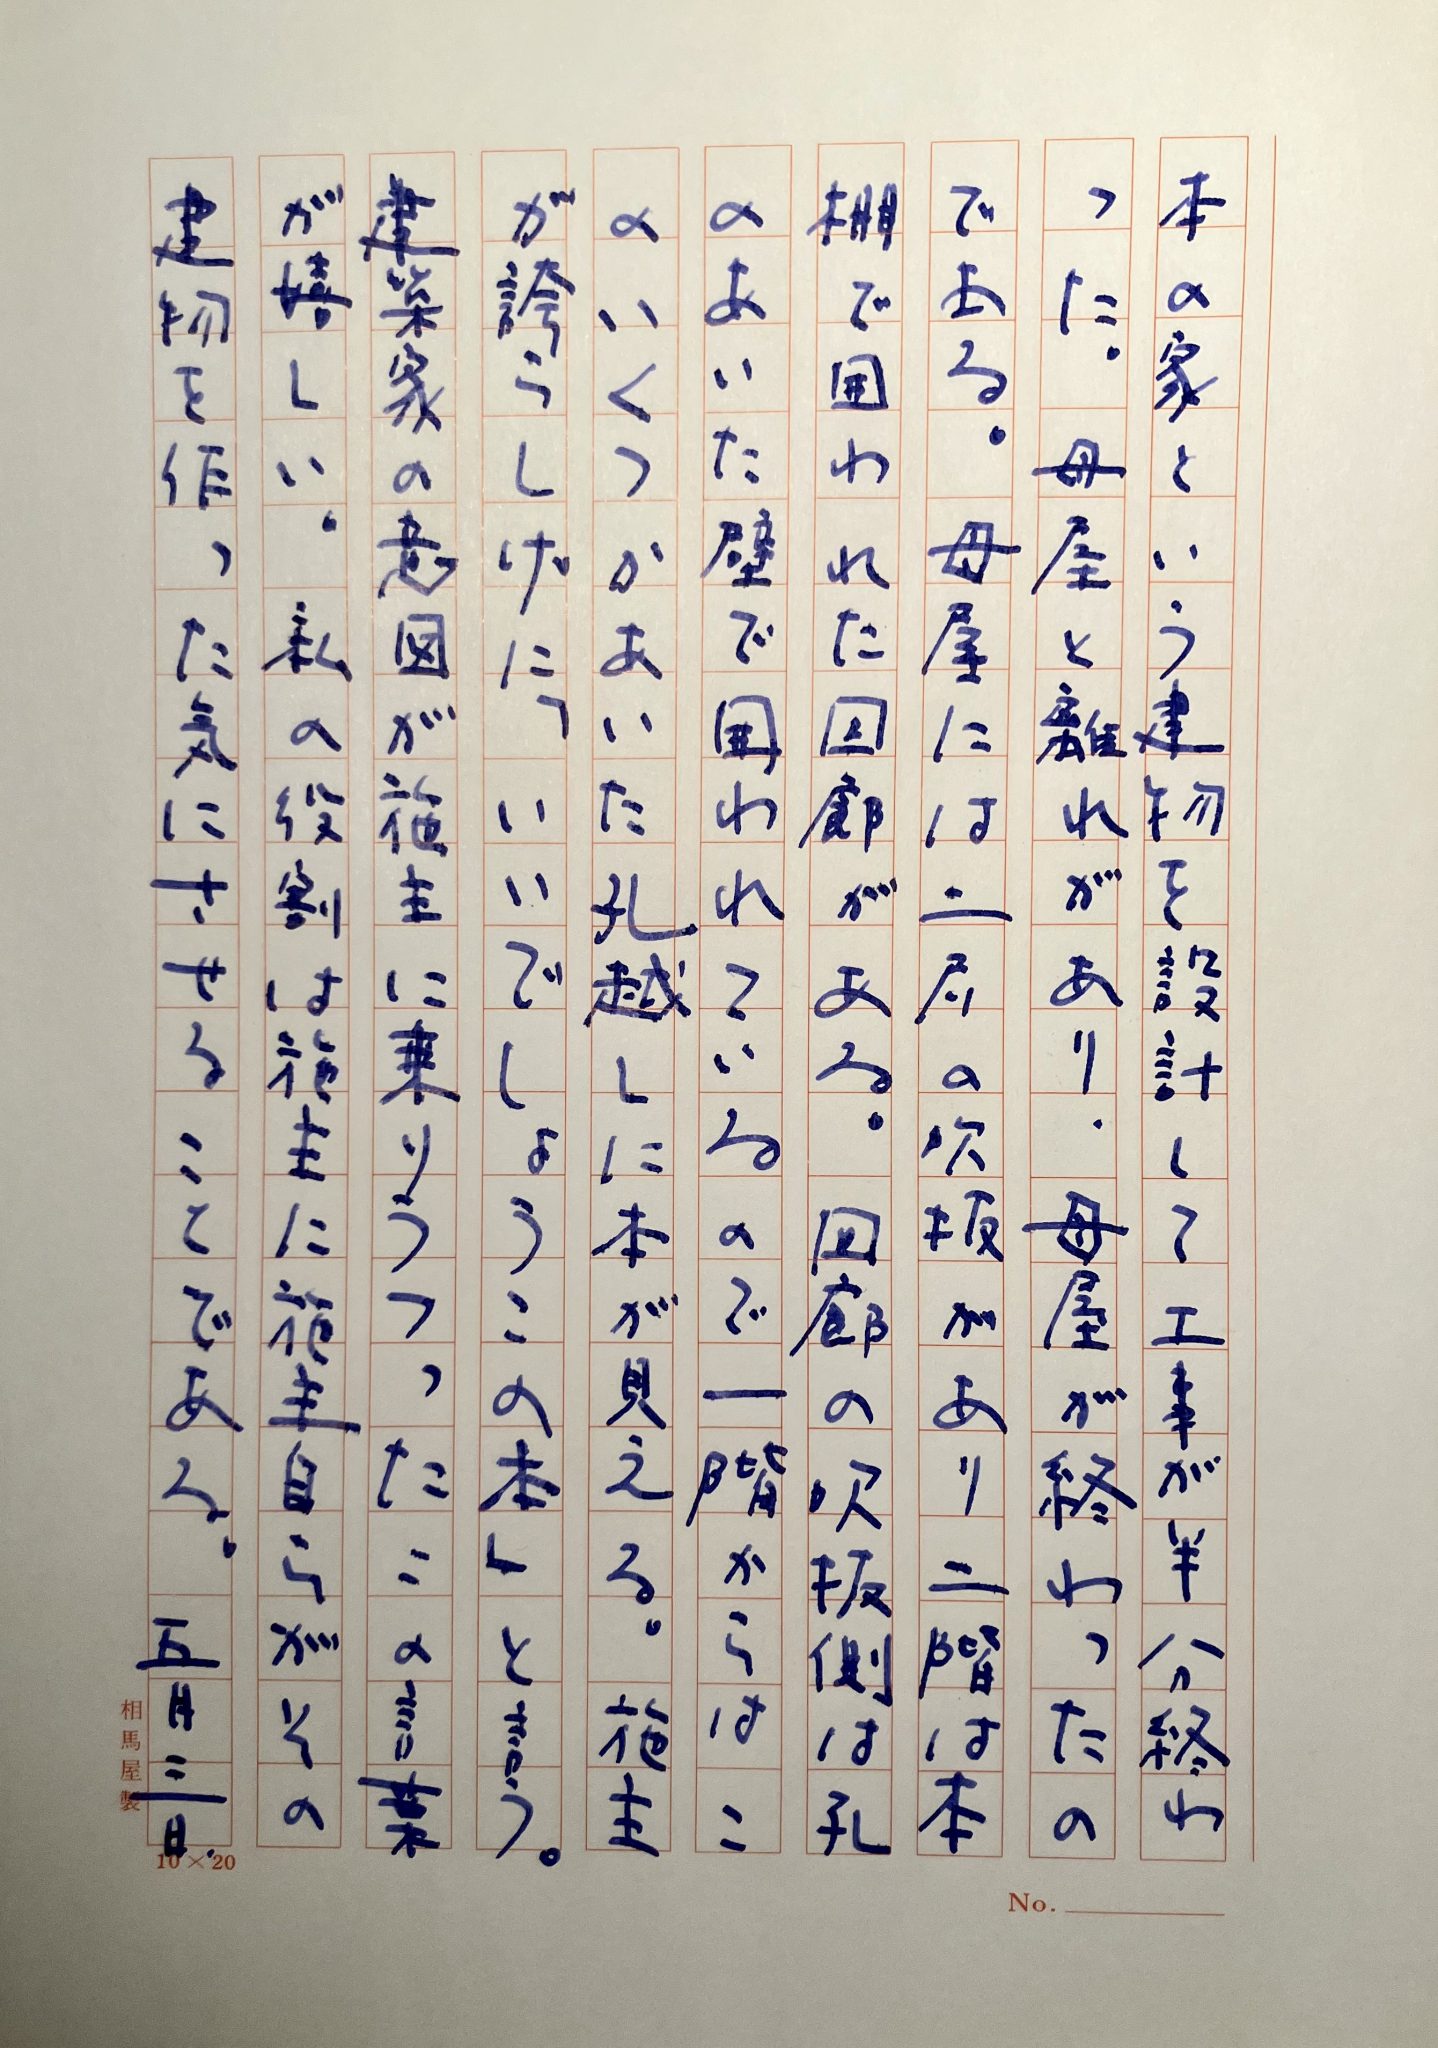 本の家という建物を設計して工事が半分終わ
った。母屋と離れがあり、母屋が終わったの
である。母屋には二層の吹抜があり二階は本
棚で囲われた回廊がある。回廊の吹抜側は孔
のあいた壁で囲われているので一階からはこ
のいくつかあいた孔越しに本が見える。施主
が誇らしげに「いいでしょうこの本」と言う。
建築家の意図が施主に乗りうつったこの言葉
が嬉しい。私の役割は施主に施主自らがその
建物を作った気にさせることである。 五月三日
相馬屋製
10×20
No.